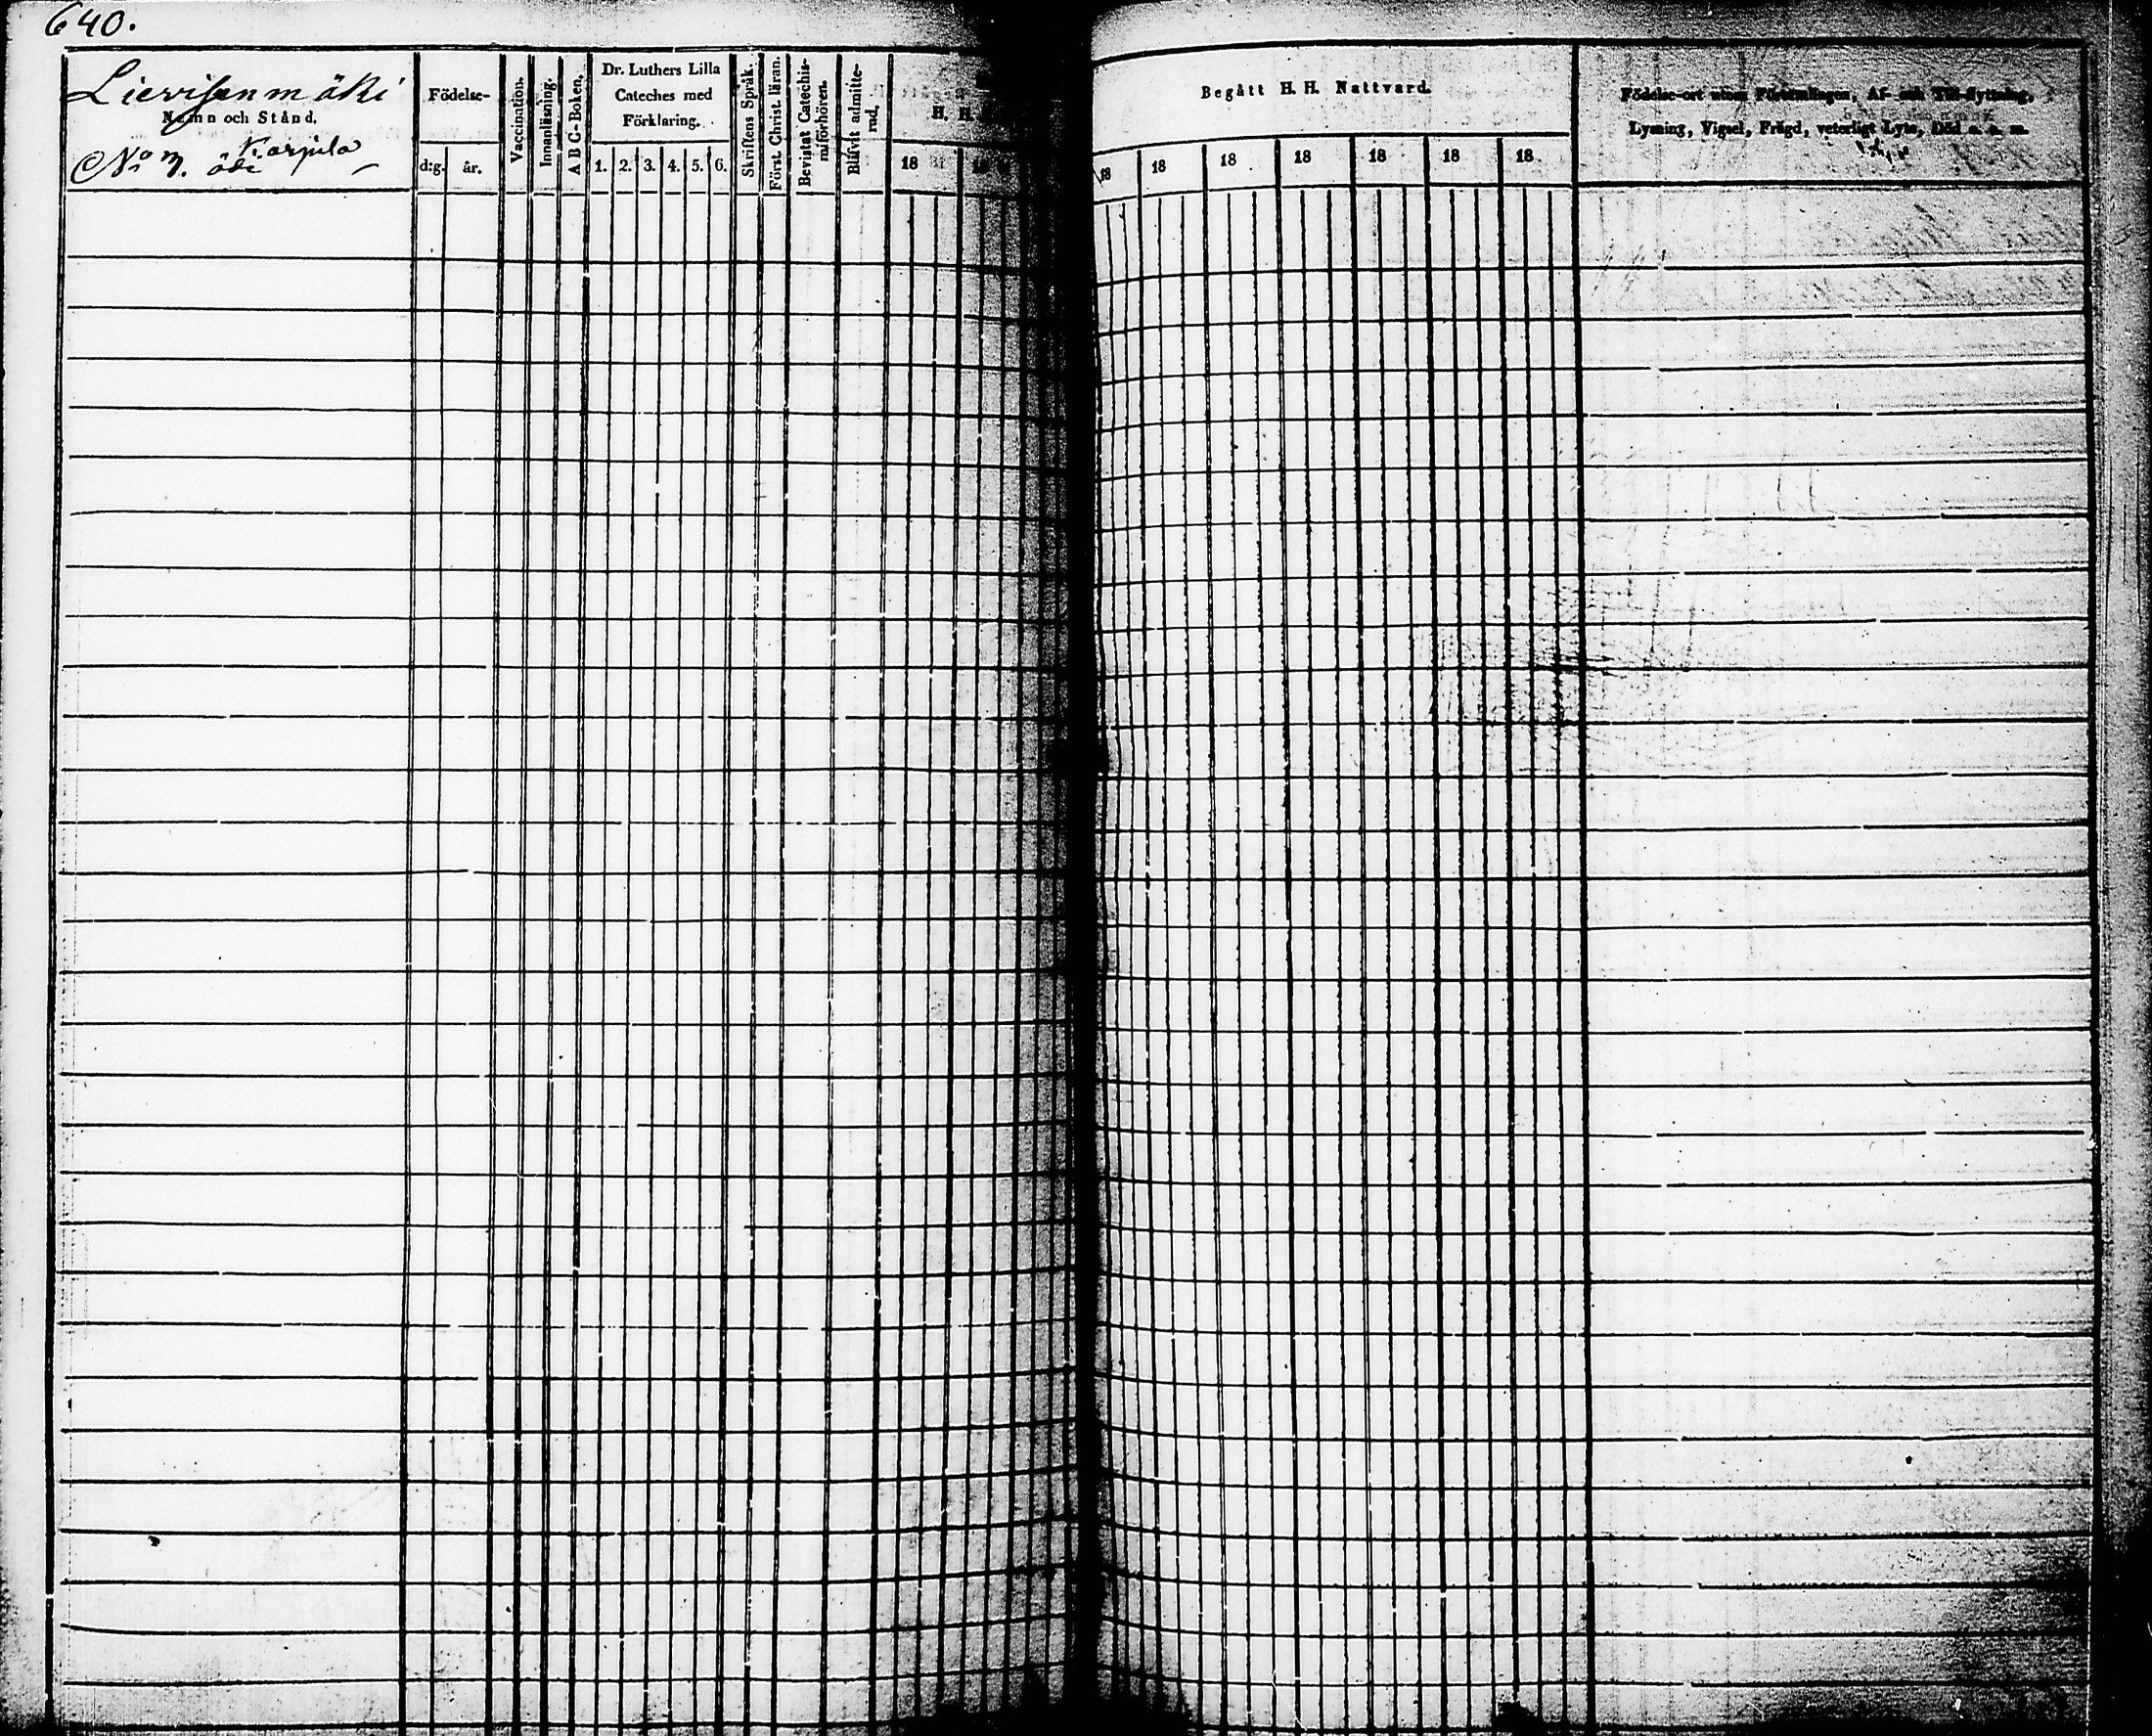 640.
Lievisenmäki
Namn och Stånd.
No 3. öde Karjula
Födelse-
d:g. år.
Vaccination.
Innanläsning.
ABC-Boken.
Dr. Luthers Lilla
Cateches med
Förklaring.
1. 2. 3. 4. 5. 6.
Skriftens Språk.
Först. Christ. läran.
Bevistat Catechis-
miförhören.
Blifvit admitte-
rad.
H. H.
18 18
Begått H. H. Nattvard.
18 18 18 18 18 18 18
Födelse-ort utom Församlingen, Af- och Till-flyttning,
Lysning, Vigsel, Frägd, veterligt Lyte, Död o. s. m.